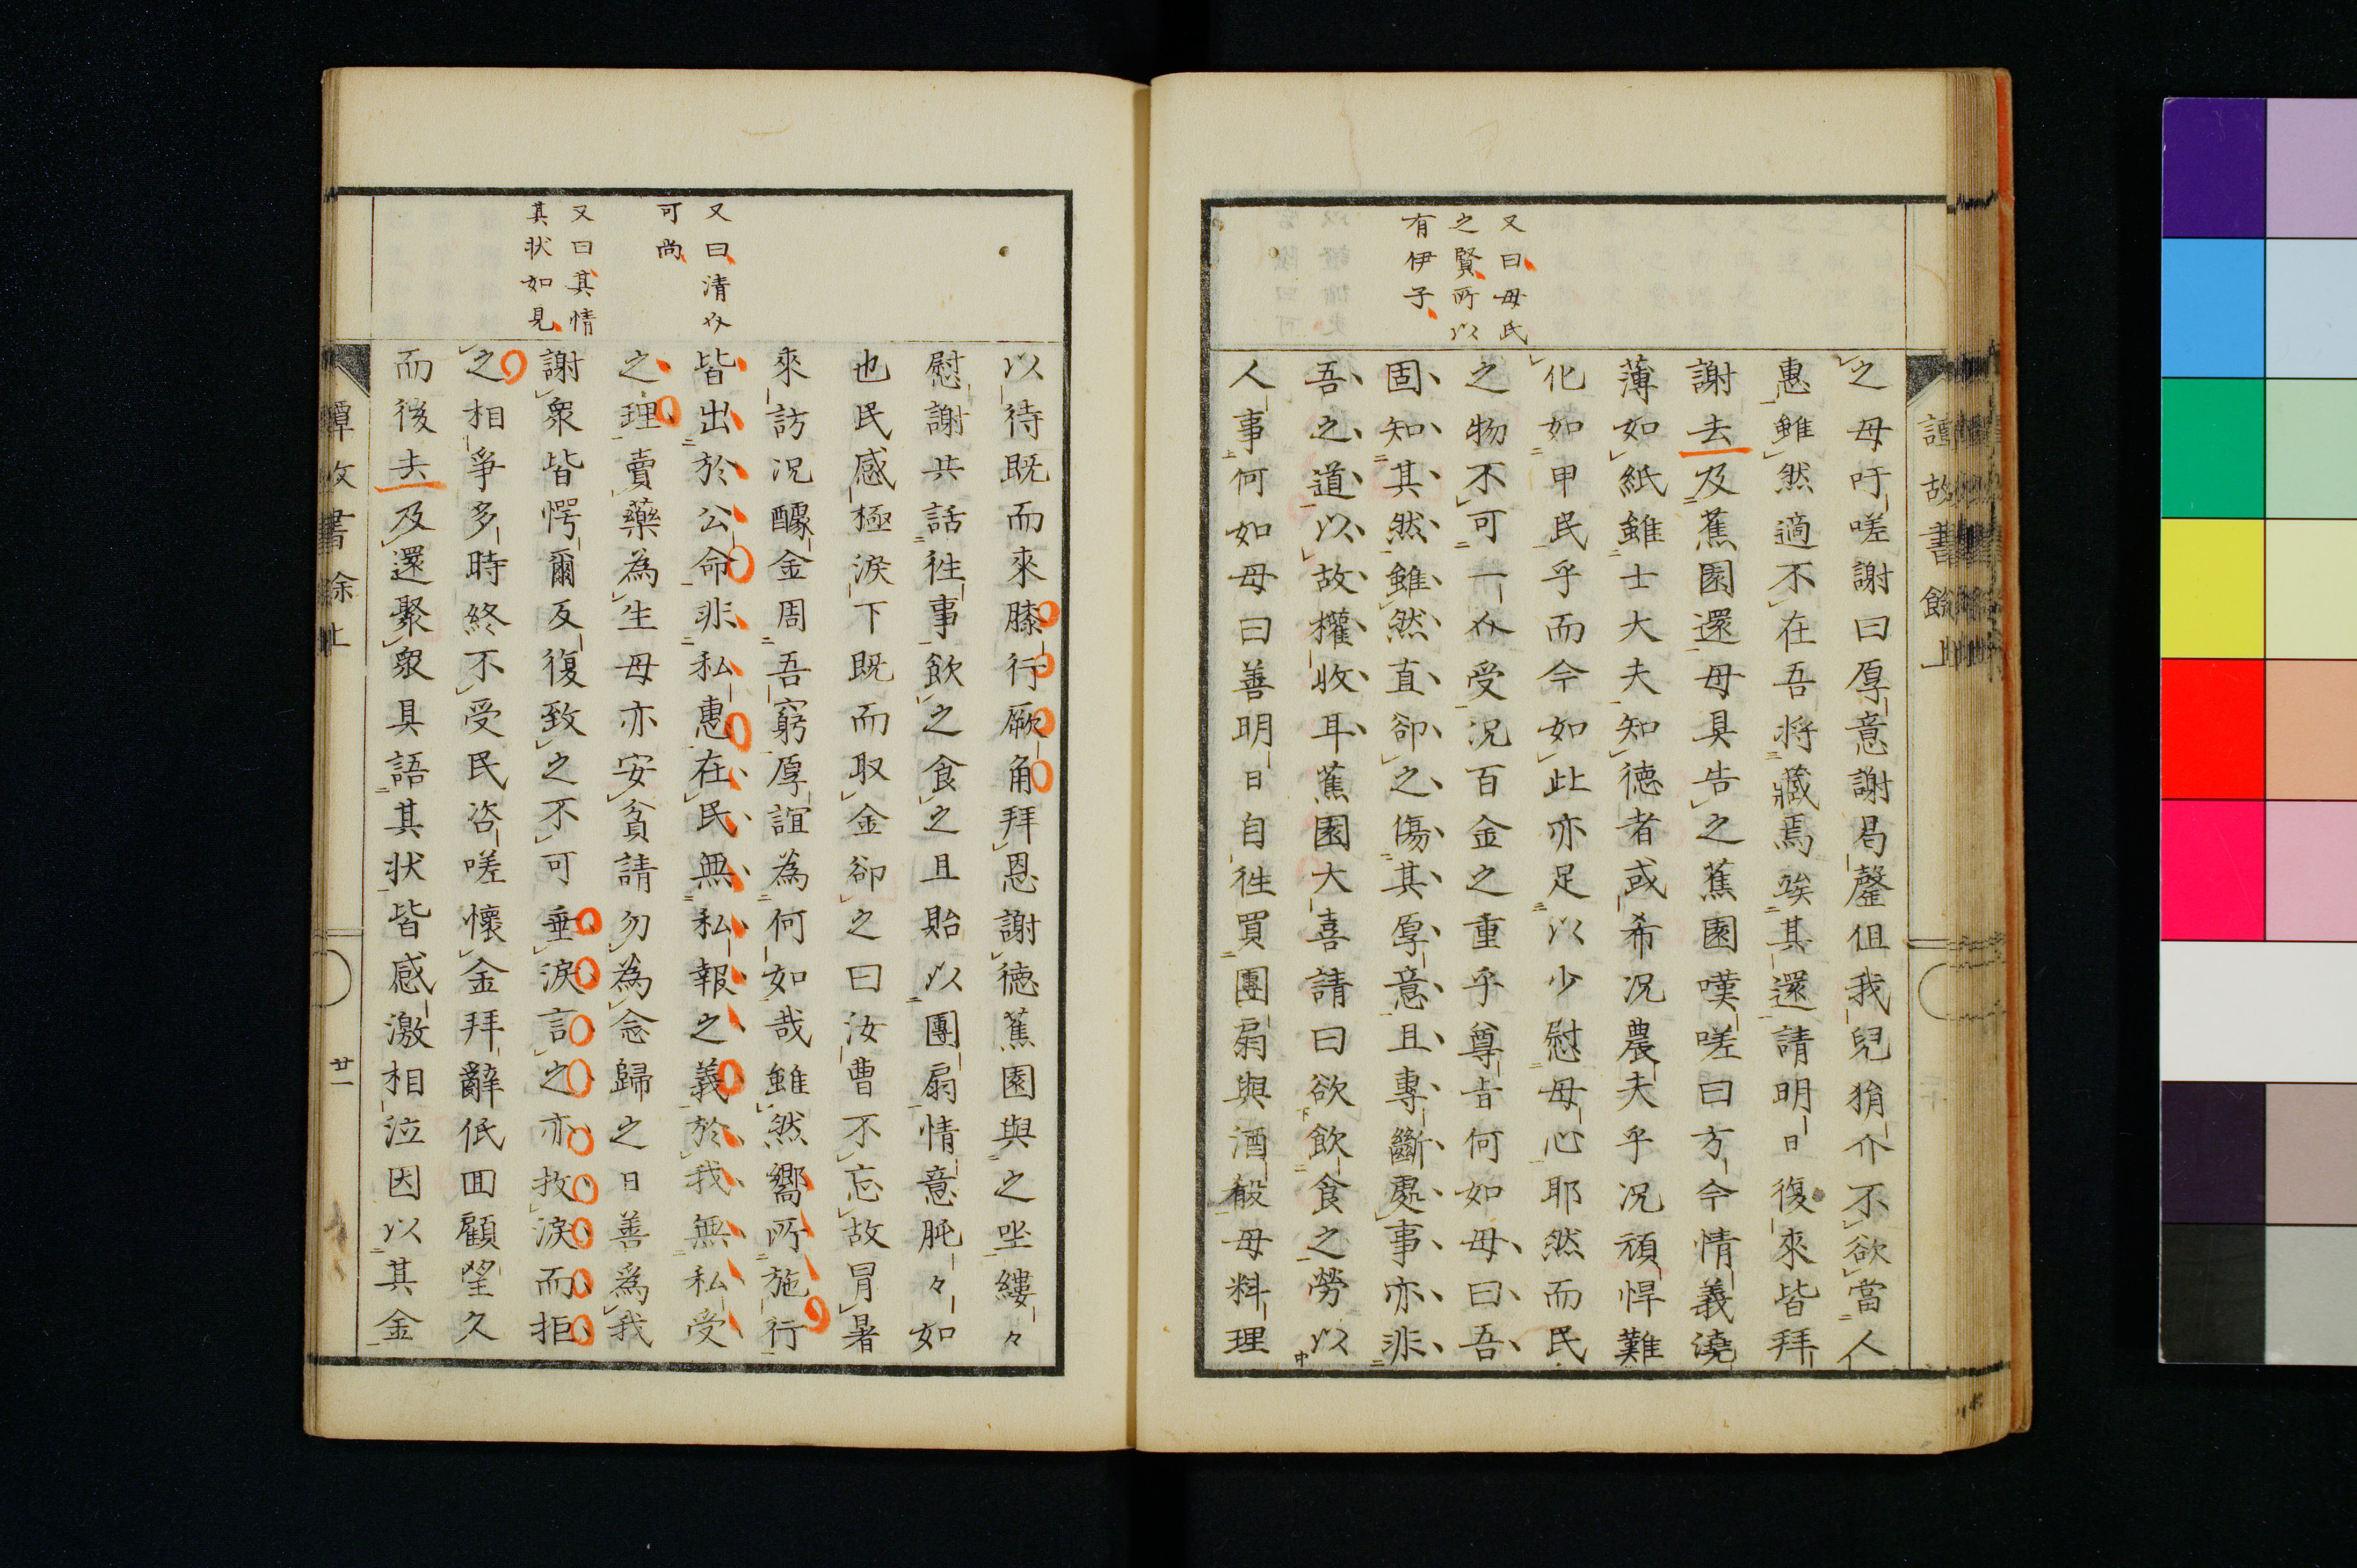 又曰毋氏
之賢所以
有伊子
之母吁嗟謝曰厚意謝曷罄但我兒狷介不欲當人
惠雖然適不在吾將藏焉竢其還請明日復來皆拜
謝去及蕉園還母具告之蕉園嘆嗟曰方今情義澆
薄如紙雖士大夫知德者或希况農夫乎况頑悍難
化如甲民乎而今如此亦足以少慰母心耶然而民
之物不可一介受况百金之重乎尊旨何如母曰吾
固知其然雖然直卻之傷其厚意且專斷處事亦非
吾之道以故權收耳蕉園大喜請曰欲飲食之勞以
人事何如母曰善明日自往買團扇與酒殽母料理
譚故書餘上
又曰清介
可尚
又曰其情
其状如見
以待既而來膝行厥角拜恩謝德蕉園與之坐縷々
慰謝共話往事飲之食之且貽以團扇情意肫々如
也民感極淚下既而取金卻之曰汝曹不忘故冐暑
來訪况醵金周吾窮厚誼為何如哉雖然嚮所施行
皆出於公命非私惠在民無私報之義於我無私受
之理賣藥為生母亦安貧請勿為念歸之日善爲我
謝衆皆愕爾反復致之不可垂淚言之亦抆淚而拒
之相爭多時終不受民咨嗟懷金拜辭低回顧望久
而後去及還聚衆具語其状皆感激相泣因以其金
譚故書餘上
廿一